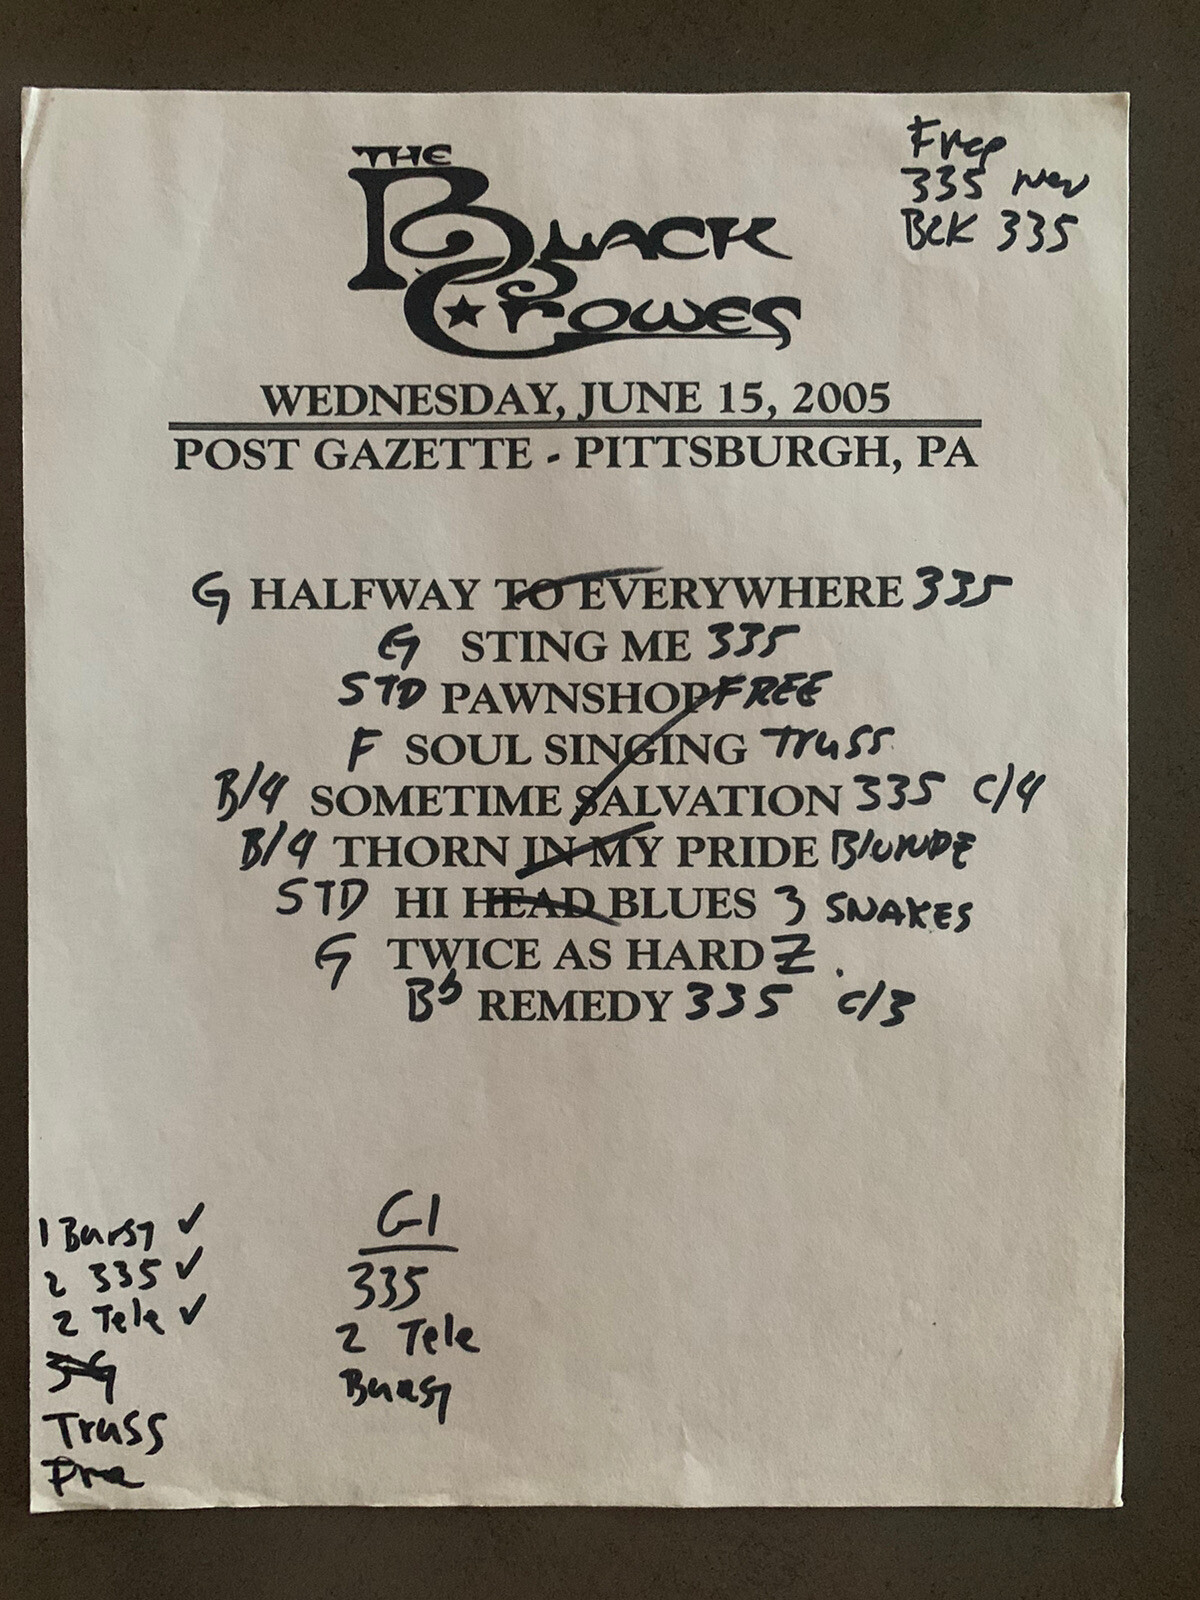 THE
BLACK
CROWES
Free
335 new
BLK 335
WEDNESDAY, JUNE 15, 2005
POST GAZETTE - PITTSBURGH, PA
G HALFWAY TO EVERYWHERE 335
G STING ME 335
STD PAWNSHOP FREE
F SOUL SINGING Truss
B/4 SOMETIME SALVATION 335 C/4
B/4 THORN IN MY PRIDE BLONDE
STD HI HEAD BLUES 3 SNAKES
G TWICE AS HARD Z
Bb REMEDY 335 C/3
1 Burst ✓
2 335 ✓
2 Tele ✓
Truss
G1
335
2 Tele
Burst